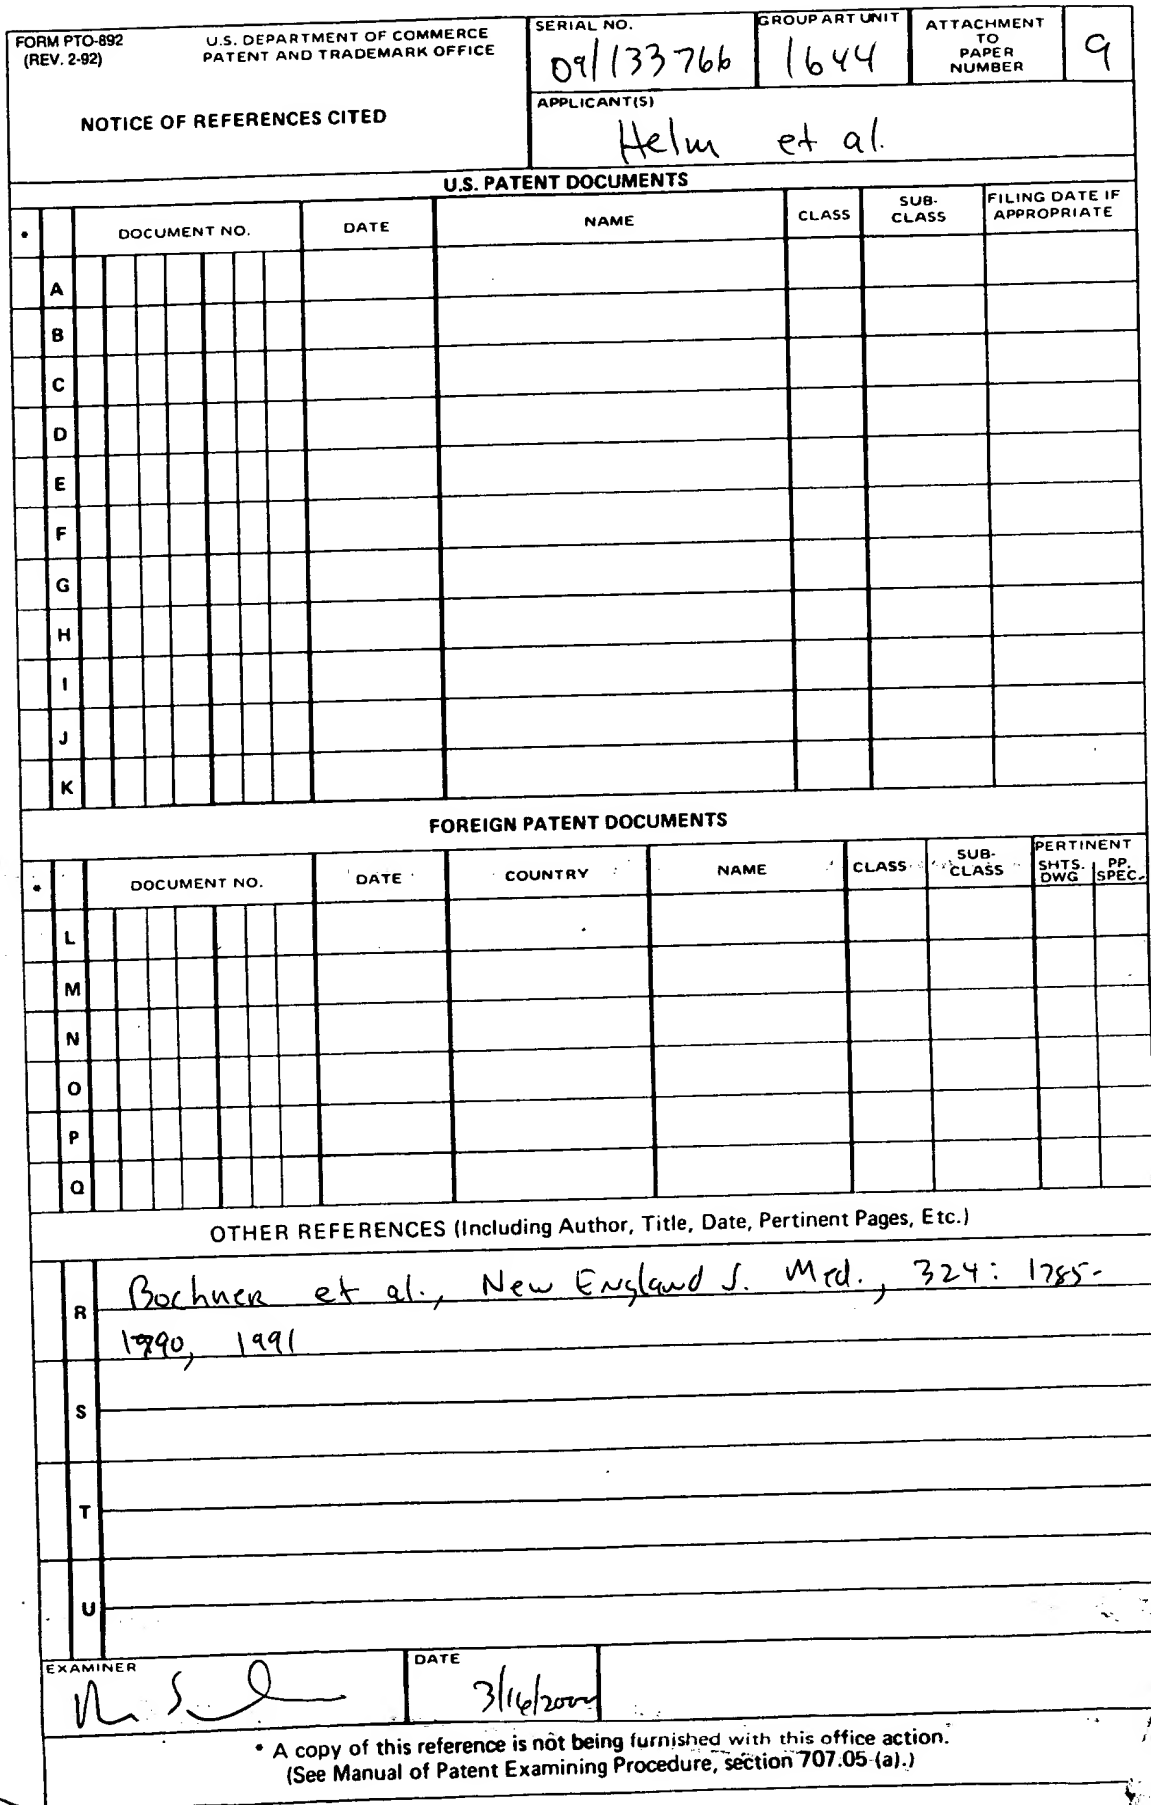 FORM PTO-892
(REV. 2-92)
U.S. DEPARTMENT OF COMMERCE
PATENT AND TRADEMARK OFFICE
NOTICE OF REFERENCES CITED
SERIAL NO.
09/133766
GROUP ART UNIT
1644
ATTACHMENT
TO
PAPER
NUMBER
9
APPLICANT(S)
Helm et al.
U.S. PATENT DOCUMENTS
* DOCUMENT NO. DATE NAME CLASS SUB-
CLASS FILING DATE IF
APPROPRIATE
A
B
C
D
E
F
G
H
I
J
K
FOREIGN PATENT DOCUMENTS
* DOCUMENT NO. DATE COUNTRY NAME CLASS SUB-
CLASS PERTINENT
SHTS.
DWG PP.
SPEC.
L
M
N
O
P
Q
OTHER REFERENCES (Including Author, Title, Date, Pertinent Pages, Etc.)
R Bochner et al., New England J. Med., 324: 1785-
1790, 1991
S
T
U
EXAMINER
DATE
3/16/2000
* A copy of this reference is not being furnished with this office action.
(See Manual of Patent Examining Procedure, section 707.05 (a).)